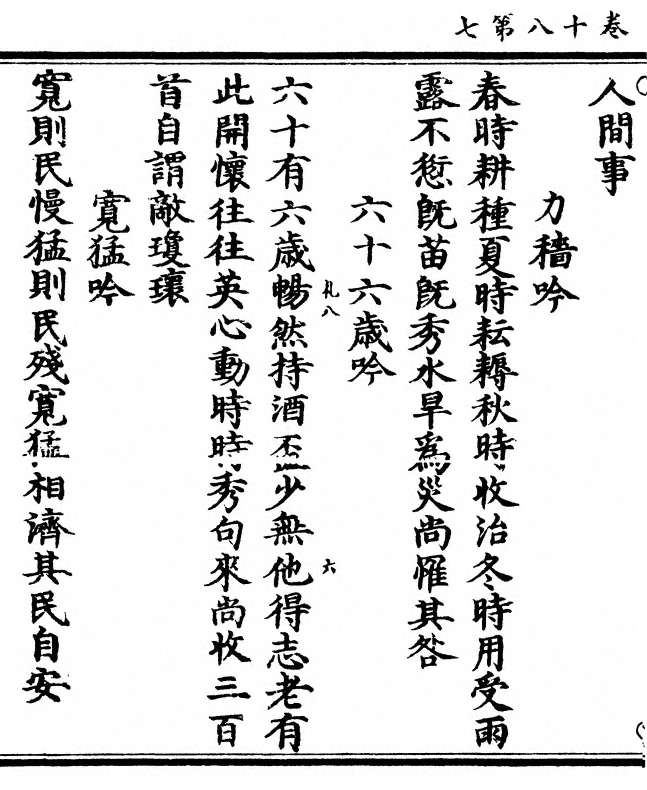 卷十八第七
人間事
力穡吟
春時耕種夏時耘耨秋時收治冬時用受雨
露不愆旣苗旣秀水旱爲災尚懼其咎
六十六歲吟
札八 六
六十有六歲暢然持酒盃少無他得志老有
此開懷往往英心動時時秀句來尚收三百
首自謂敵瓊瓌
寬猛吟
寬則民慢猛則民殘寬猛相濟其民自安